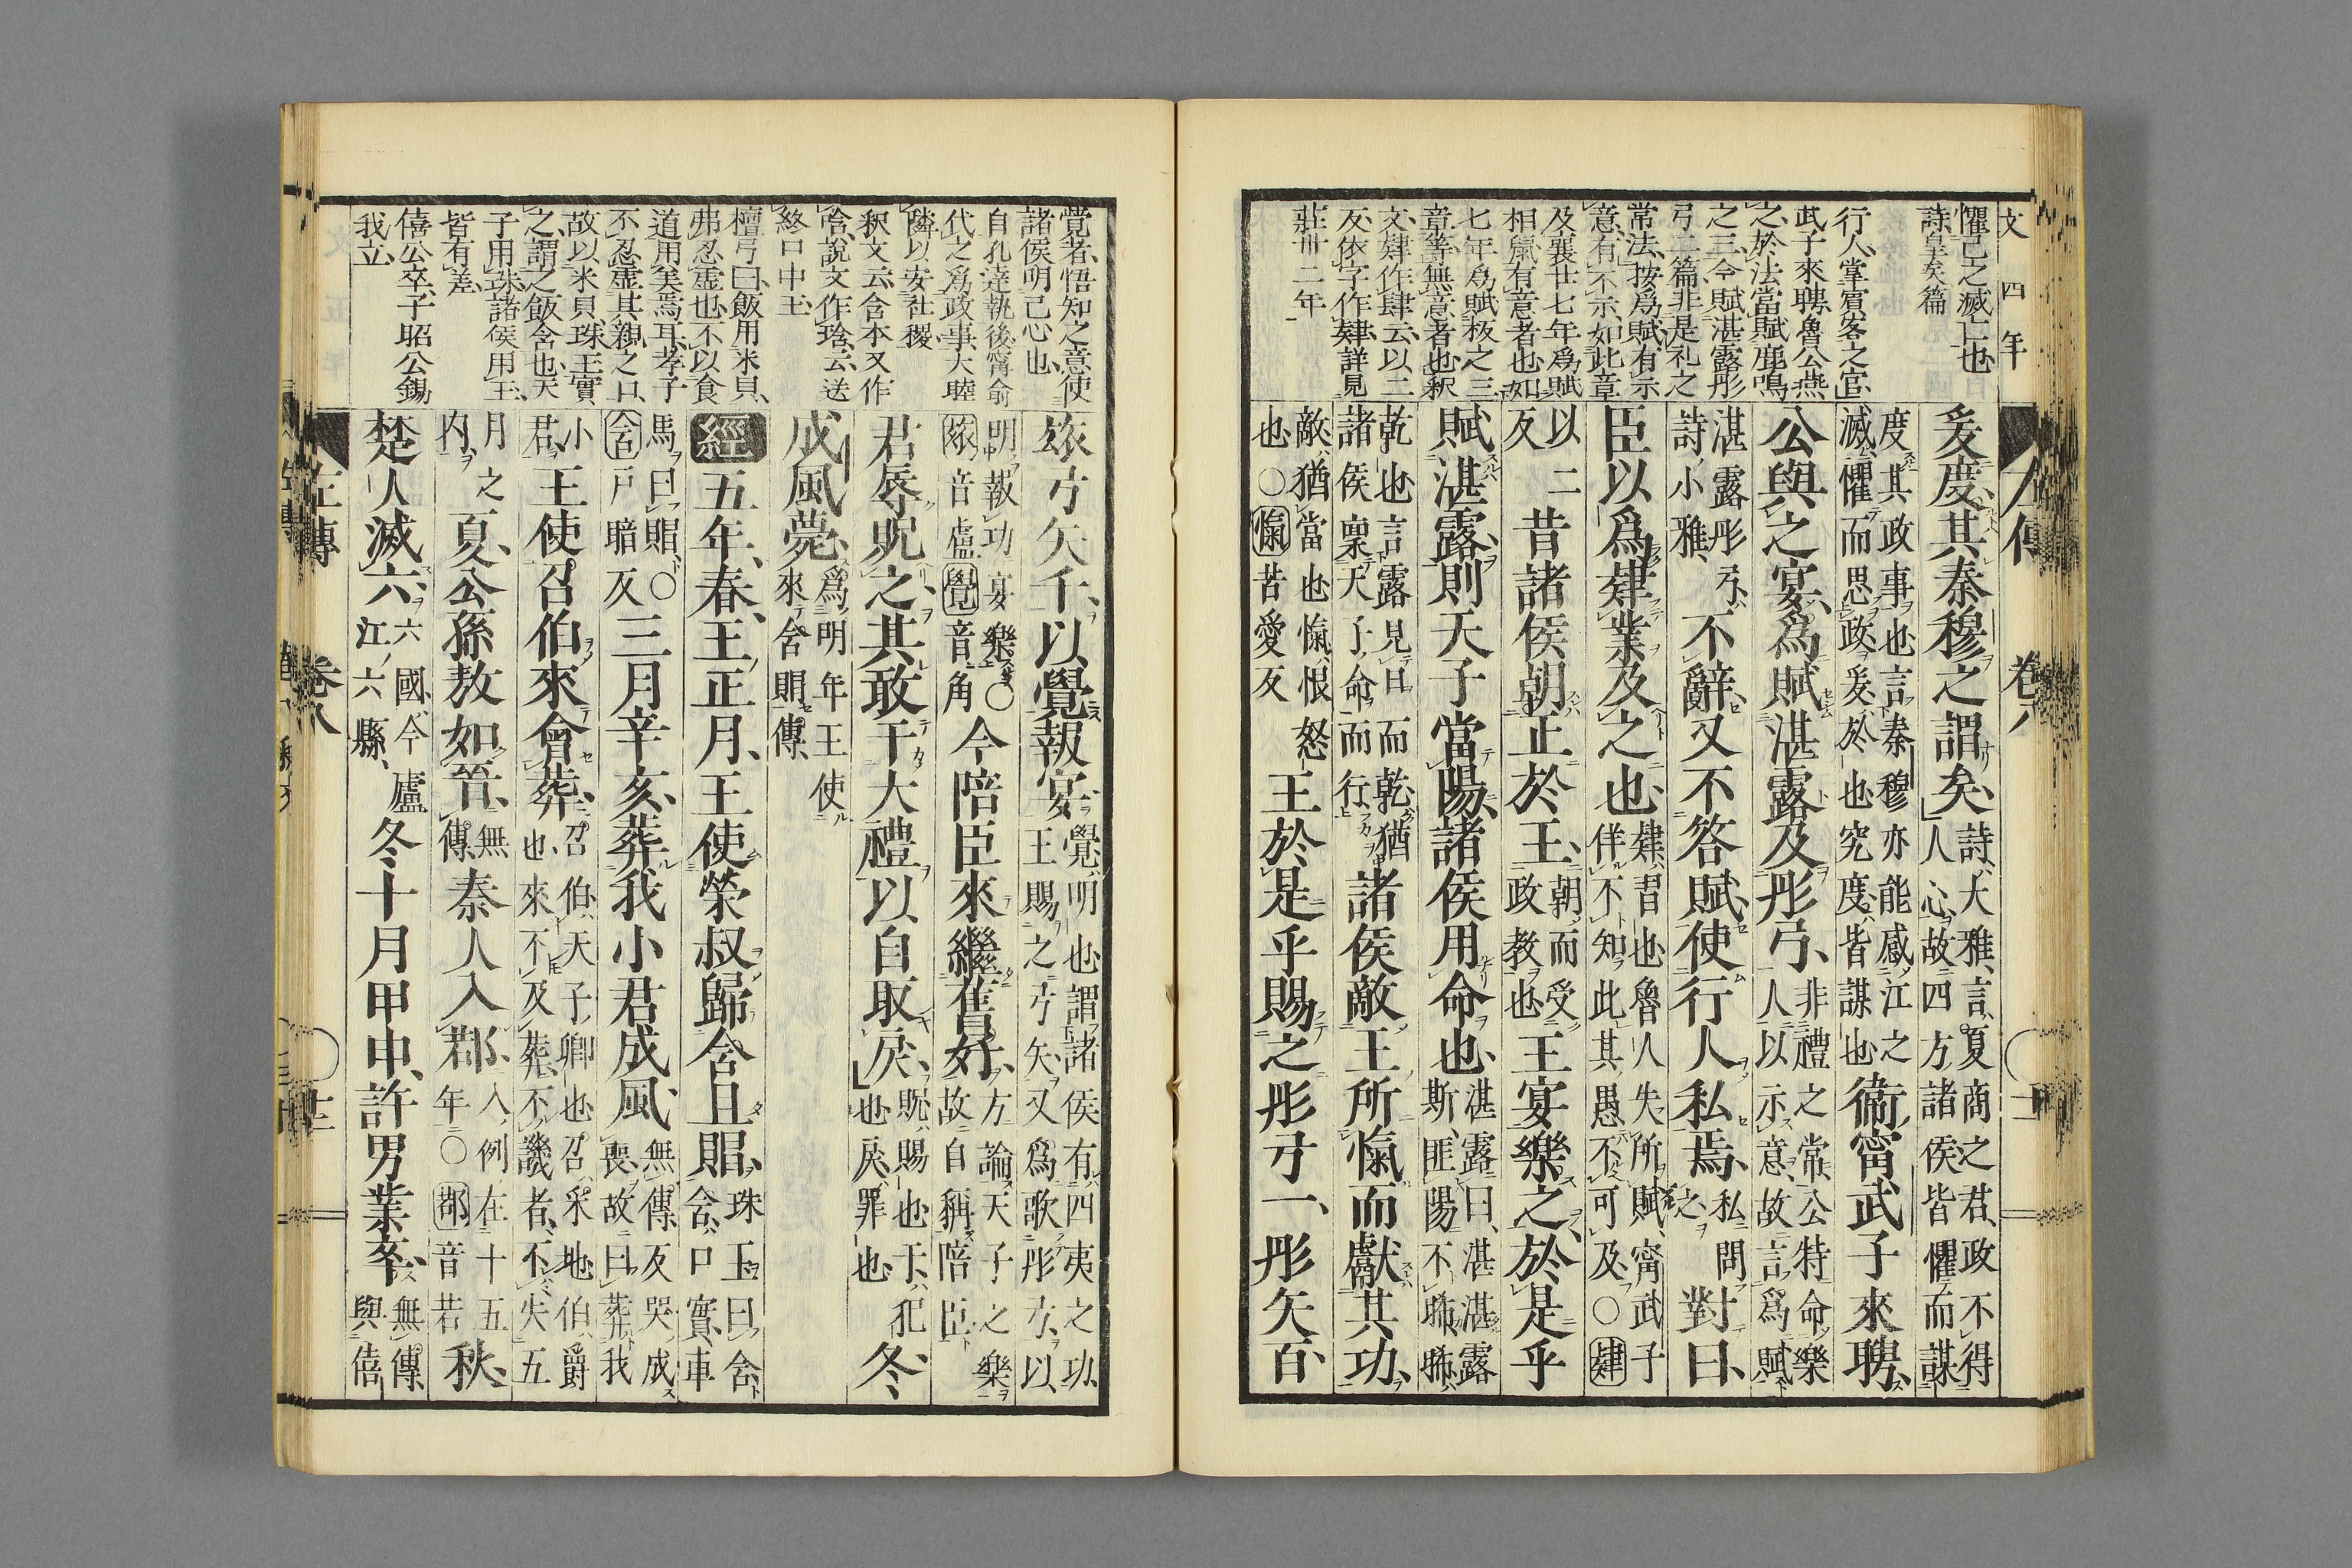 文四年
懼己之滅亡也
詩、皇矣篇
行人、掌賓客之官
武子來聘、魯公燕
之、於法當賦鹿鳴
之三、今賦湛露彤
弓二篇、非是礼之
常法、按爲賦、有示
意、有不示、如此章
及襄廿七年爲賦
相鼠、有意者也、如
七年爲賦板之三
章等、無意者也、釈
文、肄作肆、云、以二
反、依字作肄、詳見
莊卅二年、
左傳 卷八
爰度其秦穆之謂矣、
詩、大雅、言、夏商之君、政不得
人心、故四方諸侯皆懼而謀
度其政事也、言秦穆亦能感江之
滅懼而思政、爰、於也、究、度、皆謀也、
衞甯武子來聘、
公與之宴、爲賦湛露及彤弓、
非禮之常、公特命樂
人以示意、故言爲賦
湛露彤弓、
詩小雅、
不辭、又不答賦、使行人私焉、
私問
之
對曰、
臣以爲肄業及之也、
肄、習也、魯人失所賦、甯武子
佯不知、此其愚不可及、〇肄
以二
反
昔諸侯朝正於王、
朝而受
政教也
王宴樂之、於是乎
賦湛露、則天子當陽、諸侯用命也、
湛露曰、湛湛露
斯、匪陽不晞、晞、
乾也、言露見日而乾、猶
諸侯稟天子命而行、
諸侯敵王所愾而獻其功、
敵、猶當也、愾、恨怒
也、〇愾苦愛反
王於是乎賜之彤弓一、彤矢百、
覺者、悟知之意、使
諸侯明己心也、
自孔達執後、甯俞
代之爲政事、大睦
隣、以安社稷
釈文云、含本又作
唅、說文作琀、云、送
終口中玉、
檀弓曰、飯用米貝、
弗忍虛也、不以食
道、用美焉耳、孝子
不忍虛其親之口、
故以米貝珠玉實
之、謂之飯含也、天
子用珠、諸侯用玉、
皆有差、
僖公卒、子昭公錫
我立、
玈弓矢千、以覺報宴、
覺、明也、謂諸侯有四夷之功、
王賜之弓矢、又爲歌彤弓、以
明報功宴樂、〇
玈音盧、覺音角
今陪臣來繼舊好、
方論天子之樂
故自稱陪臣
君辱貺之、其敢干大禮以自取戾、
貺、賜也、干、犯
也、戾、罪也、
冬、
成風薨、
爲明年王使
來含賵傳、
經五年、春、王正月、王使榮叔歸含且賵、
珠玉曰含、
含、口實、車
馬曰賵、〇
含戶暗反
三月辛亥、葬我小君成風、
無傳、反哭成
喪、故曰葬我
小
君、
王使召伯來會葬、
召伯、天子卿也、召、采地、伯、爵
也、來不及葬、不譏者、不失五
月之
内、
夏、公孫敖如晉、
無
傳、
秦人入鄀、
入例在十五
年、〇鄀音若
秋、
楚人滅六、
六國、今廬
江六縣、
冬、十月甲申、許男業卒、
無傳、
與僖
左傳 卷八